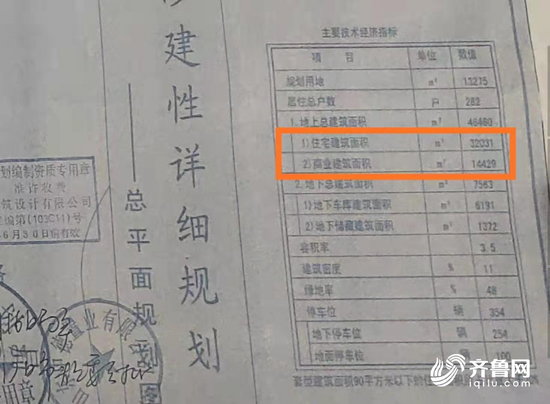 修建性详细规划
总平面规划图
划编制资质专用章
准许收费
筑设计有限公司
编第(103C11)号
6月30日前有效
主要技术经济指标
项 目 单位 数值
规划用地 m² 13275
居住总户数 户 282
1.地上总建筑面积 m² 46460
1)住宅建筑面积 m² 32031
2)商业建筑面积 m² 14429
2.地下总建筑面积 m² 7563
1)地下车库建筑面积 m² 6191
2)地下储藏建筑面积 m² 1372
容积率 3.5
建筑密度 % 11
绿地率 % 48
停车位 辆 354
地下停车位 辆 254
地面停车位 辆 100
套型建筑面积90平方米以下的住
齐鲁网
iqilu.com